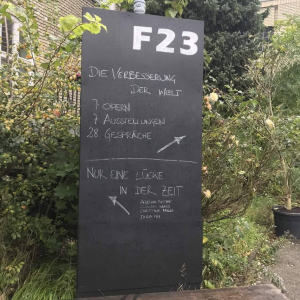 F23
DIE VERBESSERUNG
DER WELT
7 OPERN
7 AUSSTELLUNGEN
28 GESPRÄCHE
NUR EINE LÜCKE
IN DER ZEIT